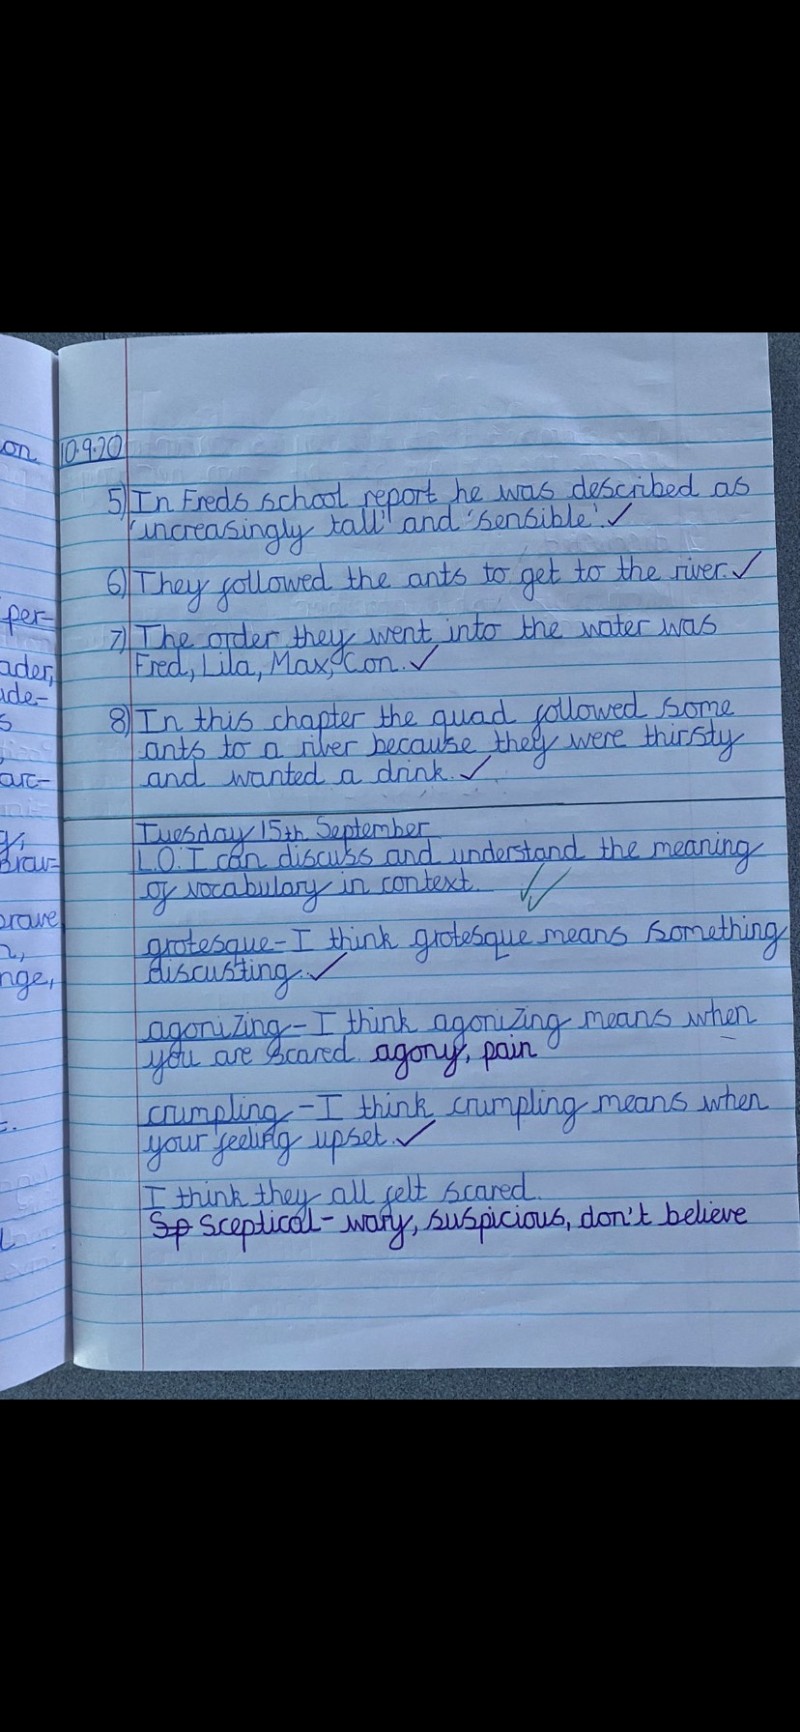 on
10.9.20
5) In Freds school report he was described as
'increasingly tall' and 'sensible'.
6) They followed the ants to get to the river.
per-
7) The order they went into the water was
Fred, Lila, Max, Con.
ader,
ude-
s
8) In this chapter the quad followed some
ants to a river because they were thirsty
and wanted a drink.
arc-
Tuesday 15th September
L.O: I can discuss and understand the meaning
of vocabulary in context.
brave
grotesque - I think grotesque means something
discusting.
nge,
agonizing - I think agonizing means when
you are scared. agony, pain
crumpling - I think crumpling means when
your feeling upset.
I think they all felt scared.
Sp Sceptical - wary, suspicious, don't believe